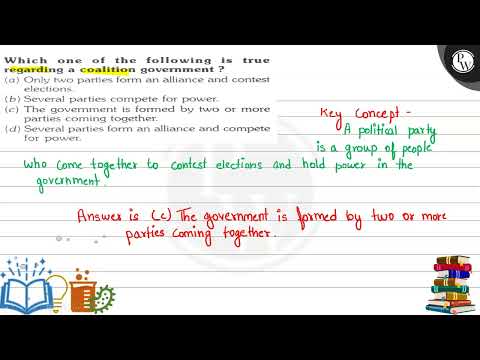 Which one of the following is true
regarding a coalition government ?
(a) Only two parties form an alliance and contest
elections.
(b) Several parties compete for power.
(c) The government is formed by two or more
parties coming together.
(d) Several parties form an alliance and compete
for power.
Key Concept -
A political party
is a group of people
who come together to contest elections and hold power in the
government.
Answer is (c) The government is formed by two or more
parties coming together.